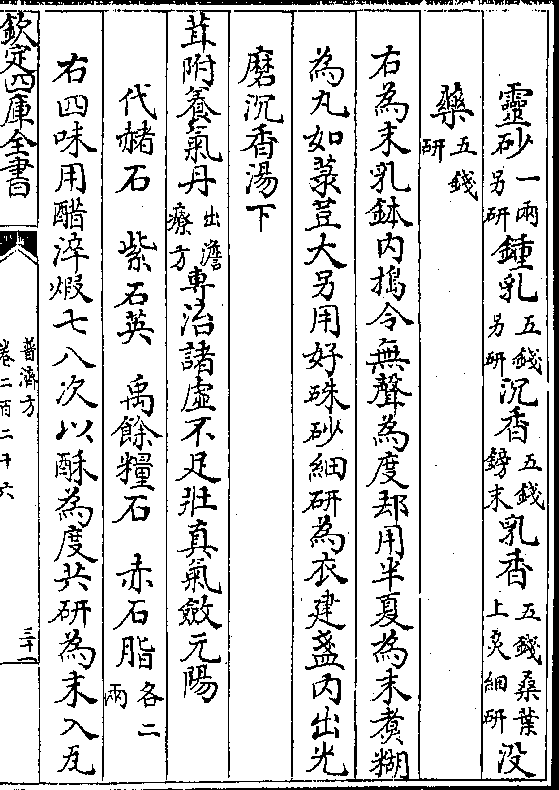 靈砂一兩另研鍾乳五錢另研沉香五錢鎊末乳香五錢桑葉上炙細研没
藥五錢研
右為末乳鉢内搗令無聲為度却用半夏為末煑糊
為丸如菉荳大另用好硃砂細研為衣建盞内出光
磨沉香湯下
茸附養氣丹出澹療方専治諸虚不足壯真氣斂元陽
代赭石　紫石英　禹餘糧石　赤石脂各二兩
右四味用醋淬煅七八次以酥為度共研為末入瓦
欽定四庫全書
普濟方
卷二百二十六
三十一